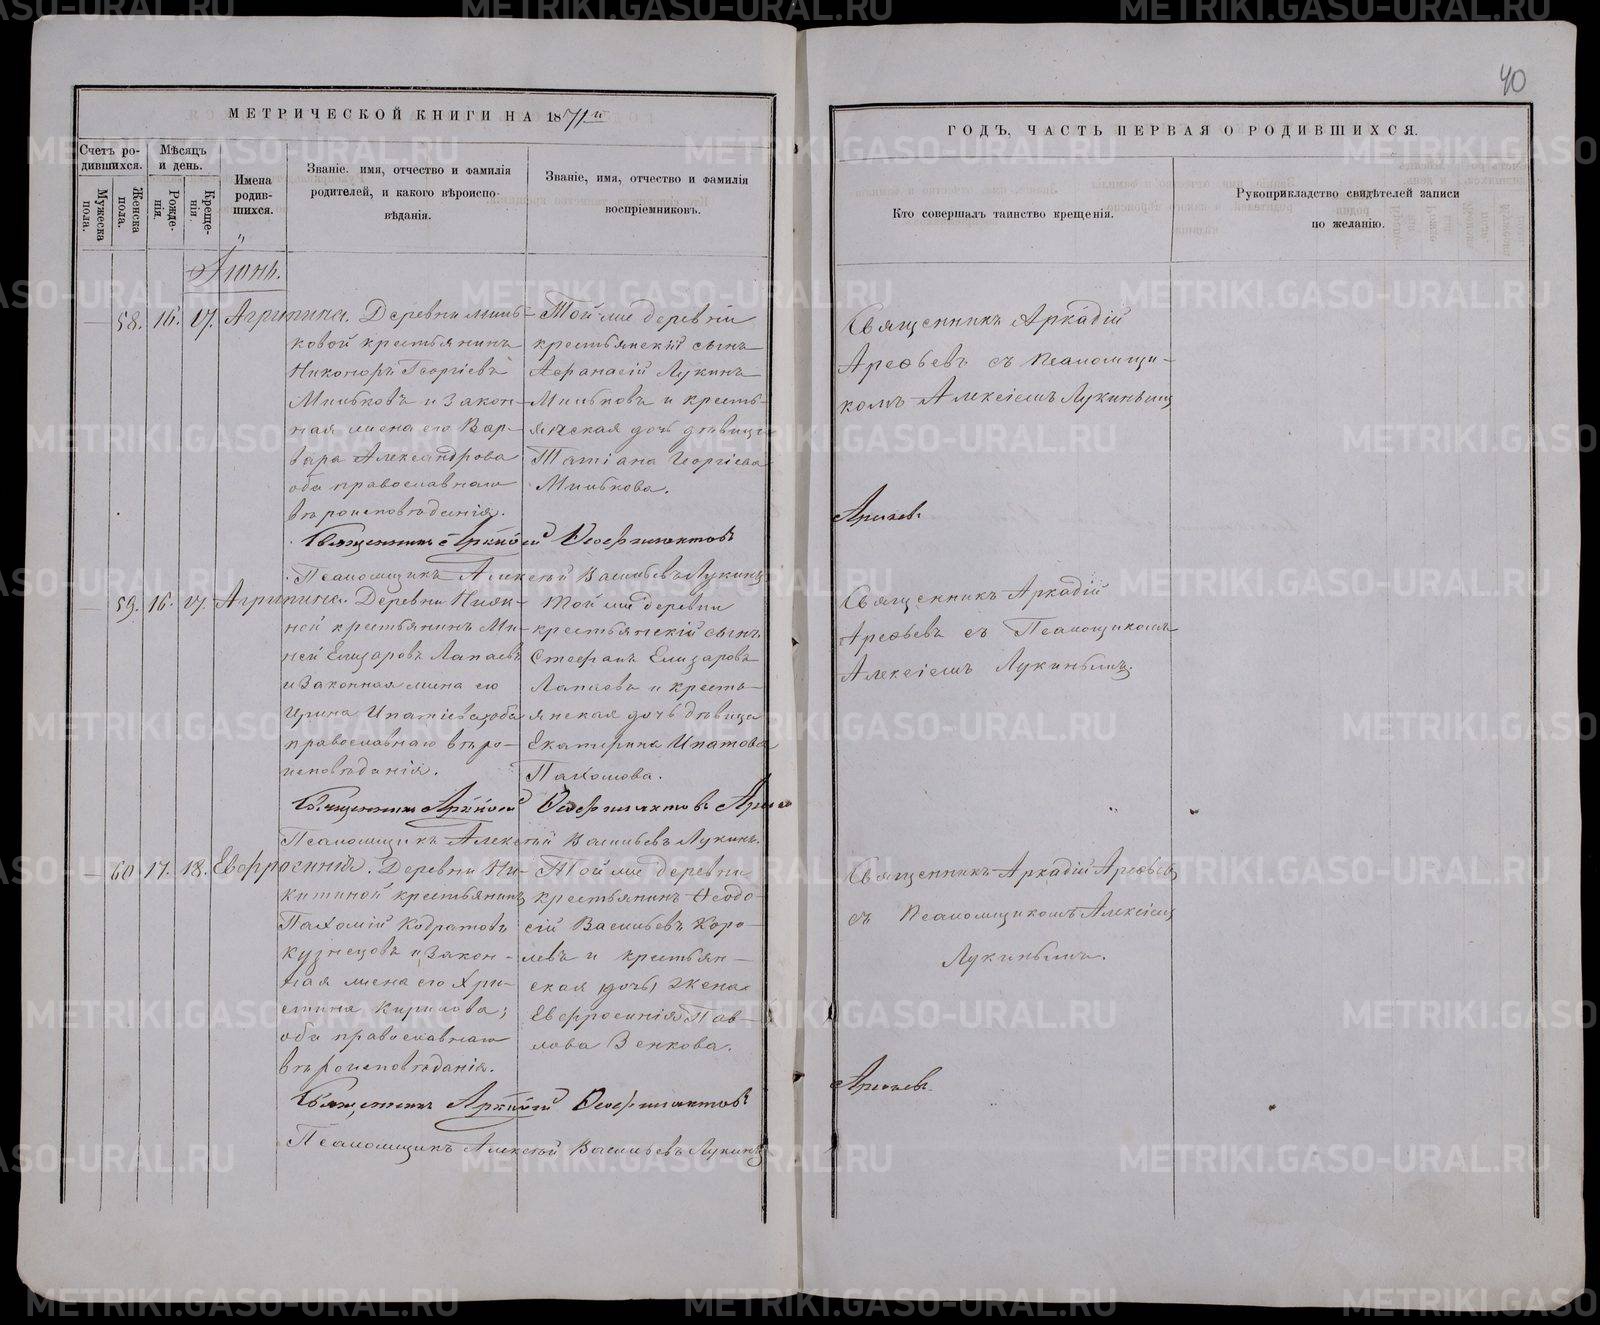 40
МЕТРИЧЕСКОЙ КНИГИ НА 1871й
ГОДЪ, ЧАСТЬ ПЕРВАЯ О РОДИВШИХСЯ.
Счетъ ро-
дившихся.
Мѣсяцъ
и день.
Мужеска
пола.
Женска
пола.
Рожде-
нія.
Креще-
нія.
Имена
родив-
шихся.
Званіе, имя, отчество и фамилія
родителей, и какого вѣроиспо-
вѣданія.
Званіе, имя, отчество и фамилія
воспріемниковъ.
Кто совершалъ таинство крещенія.
Рукоприкладство свидѣтелей записи
по желанію.
Іюнь.
58. 16. 17. Агрипина. Деревни Миль-
ковой крестьянинъ
Никоноръ Георгіевъ
Мильковъ и закон-
ная жена его Вар-
вара Александрова
оба православнаго
вѣроисповѣданія.
Той же деревни
крестьянскій сынъ
Афанасій Лукинъ
Мильковъ и кресть-
янская дочь дѣвица
Татіана Георгіева
Милькова.
Священникъ Аркадій
Арефьевъ съ псаломщи-
комъ Алексіемъ Лукинымъ
Священникъ Аркадій
Псаломщикъ Алексѣй Васильевъ Лукинъ
59. 16. 17. Агрипина. Деревни
крестьянинъ Ми-
ней Елизаровъ Лапаевъ
и законная жена его
Ирина Ипатіева, оба
православнаго вѣро-
исповѣданія.
Той же деревни
крестьянскій сынъ
Стефанъ Елизаровъ
Лапаевъ и кресть-
янская дочь дѣвица
Екатерина Ипатова
Пахомова.
Священникъ Аркадій
Арефьевъ съ Псаломщикомъ
Алексіемъ Лукинымъ.
Священникъ Аркадій
Псаломщикъ Алексѣй Васильевъ Лукинъ.
60. 17. 18. Евфросинія. Деревни Ни-
китиной крестьянинъ
Пахомій Кодратовъ
Кузнецовъ и закон-
ная жена его Хри-
стина Кирилова;
оба православнаго
вѣроисповѣданія.
Той же деревни
крестьянинъ Ѳеодо-
сій Васильевъ Коро-
левъ и крестьян-
ская дочь жена
Евфросинія Пав-
лова Зенкова.
Священникъ Аркадій Арефьевъ
съ Псаломщикомъ Алексіемъ
Лукинымъ.
Священникъ Аркадій
Псаломщикъ Алексѣй Васильевъ Лукинъ
METRIKI.GASO-URAL.RU